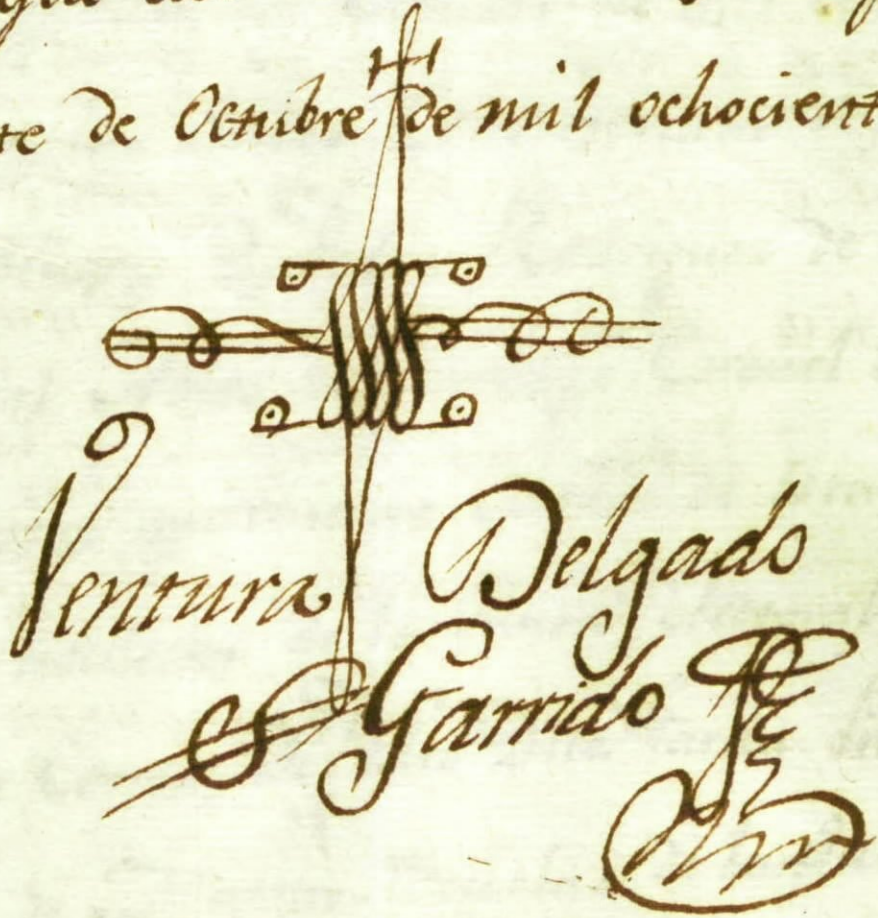 te de Octubre de mil ochocient
Ventura Delgado
Garrido